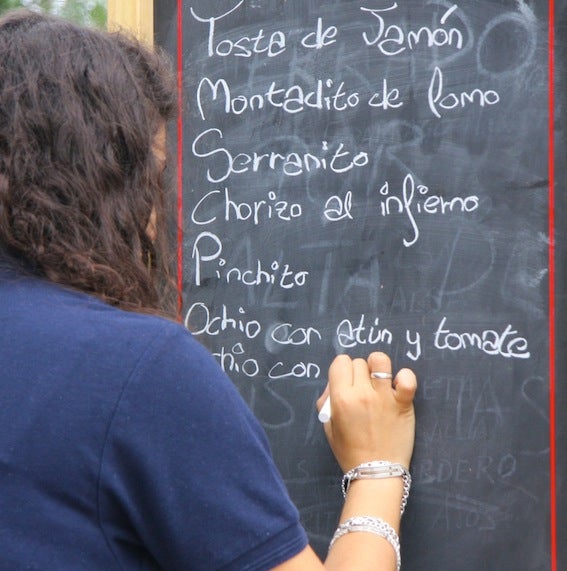 Tosta de Jamón
Montadito de lomo
Serranito
Chorizo al infierno
Pinchito
Ochio con atún y tomate
con